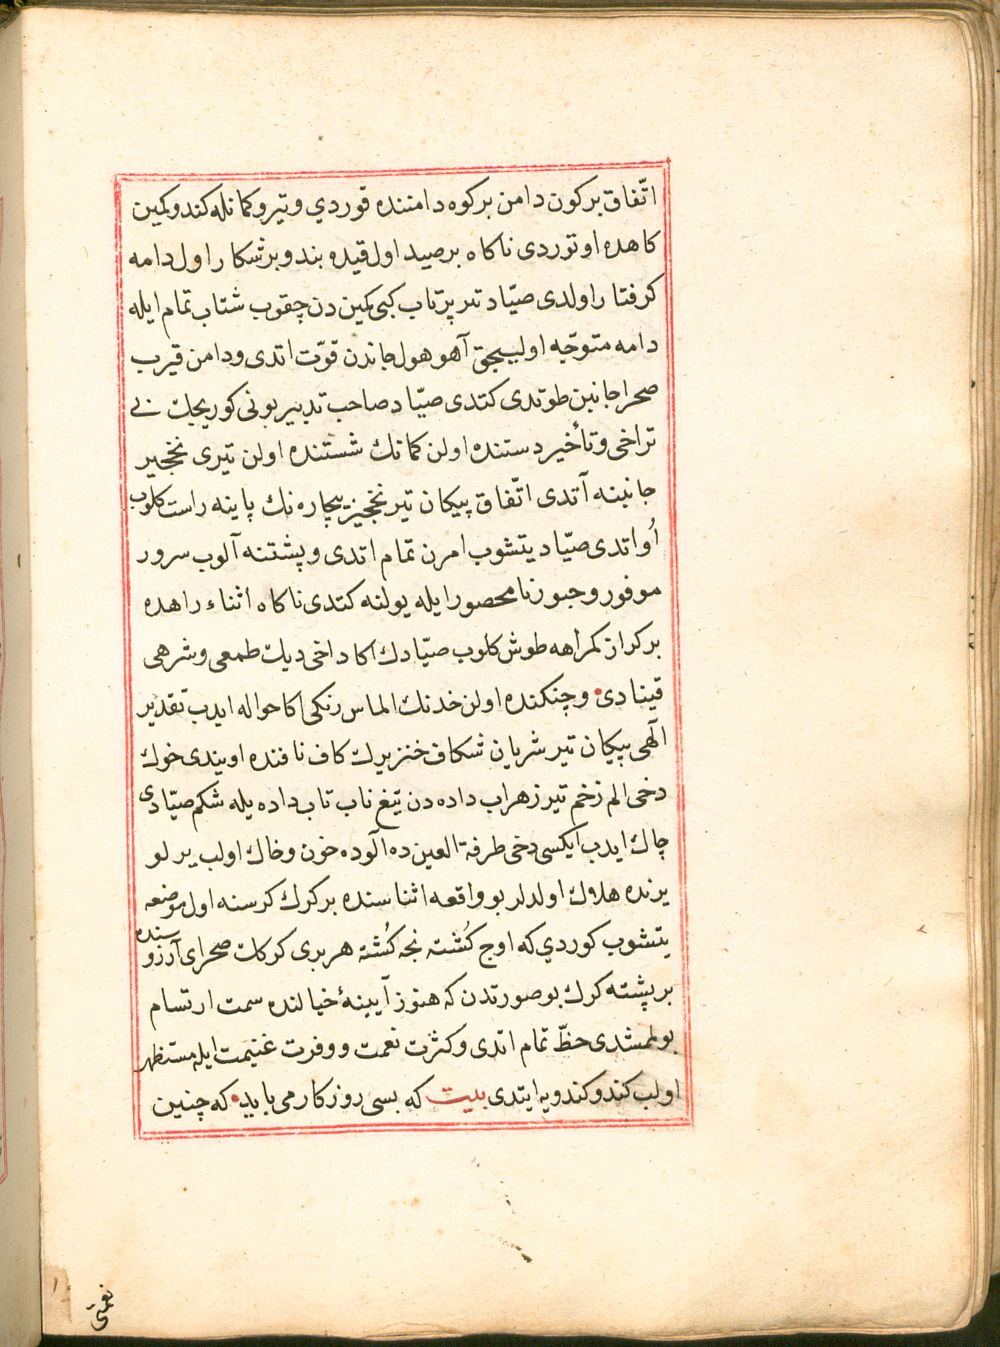 اتّفاق بر كون دامن بر كوه دامننده قوردي و تير و كمانله كندو كمين
كاهده اوتوردى ناكاه بر صيد اول قيده بند و بر شكار اول دامه
كرفتار اولدى صيّاد تير پرتاب كبى كميندن چقوب شتاب تمام ايله
دامه متوجّه اوليجق آهو هول جاندن قوّت اتدى و دامن قيرب
صحرا جانبن طوتدى كتدى صيّاد صاحب تدبير بونى كوريجك بى
تراخى و تأخير دستنده اولن كمانك شستنده اولن تيرى نخچير
جانبنه آتدى اتّفاق پيكان تير نخچيز بيچاره نك پاينه راست كلوب
اُواتدى صيّاد يتشوب امرن تمام اتدى و پشتنه آلوب سرور
موفور و حبور نامحصور ايله يولنه كتدى ناكاه اثناء راهده
بر كراز كمراهه طوش كلوب صيّادك اكا داخى ديك طمعى و شرهى
قينادى و چنكنده اولن خدنك الماس رنكى اكا حواله ايدب تقدير
الٓهى پيكان تير شريان شكاف خنزيرك كاف نافنده اويندى خوك
دخى الم زخم تير زهراب داده دن تيغ ناب تاب داده يله شكم صيّادى
چاك ايدب ايكسى دخى طرفة العين ده آلوده خون و خاك اولب ير لو
يرنده هلاك اولدلر بو واقعه اثناسنده بر كرك كرسنه اول موضعه
يتشوب كوردي كه اوج كُشته نجه كُشته هر برى كركك صحراى آرزوسنده
بر پشته كرك بو صورتدن كه هنوز آيينۀ خيالنده سمت ارتسام
بولمشدى حظّ تمام اتدى و كثرت نعمت و وفرت غنيمت ايله مستظهر
اولب كندو كندويه ايتدى بيت كه بسى روزكار مى بايد كه چنين